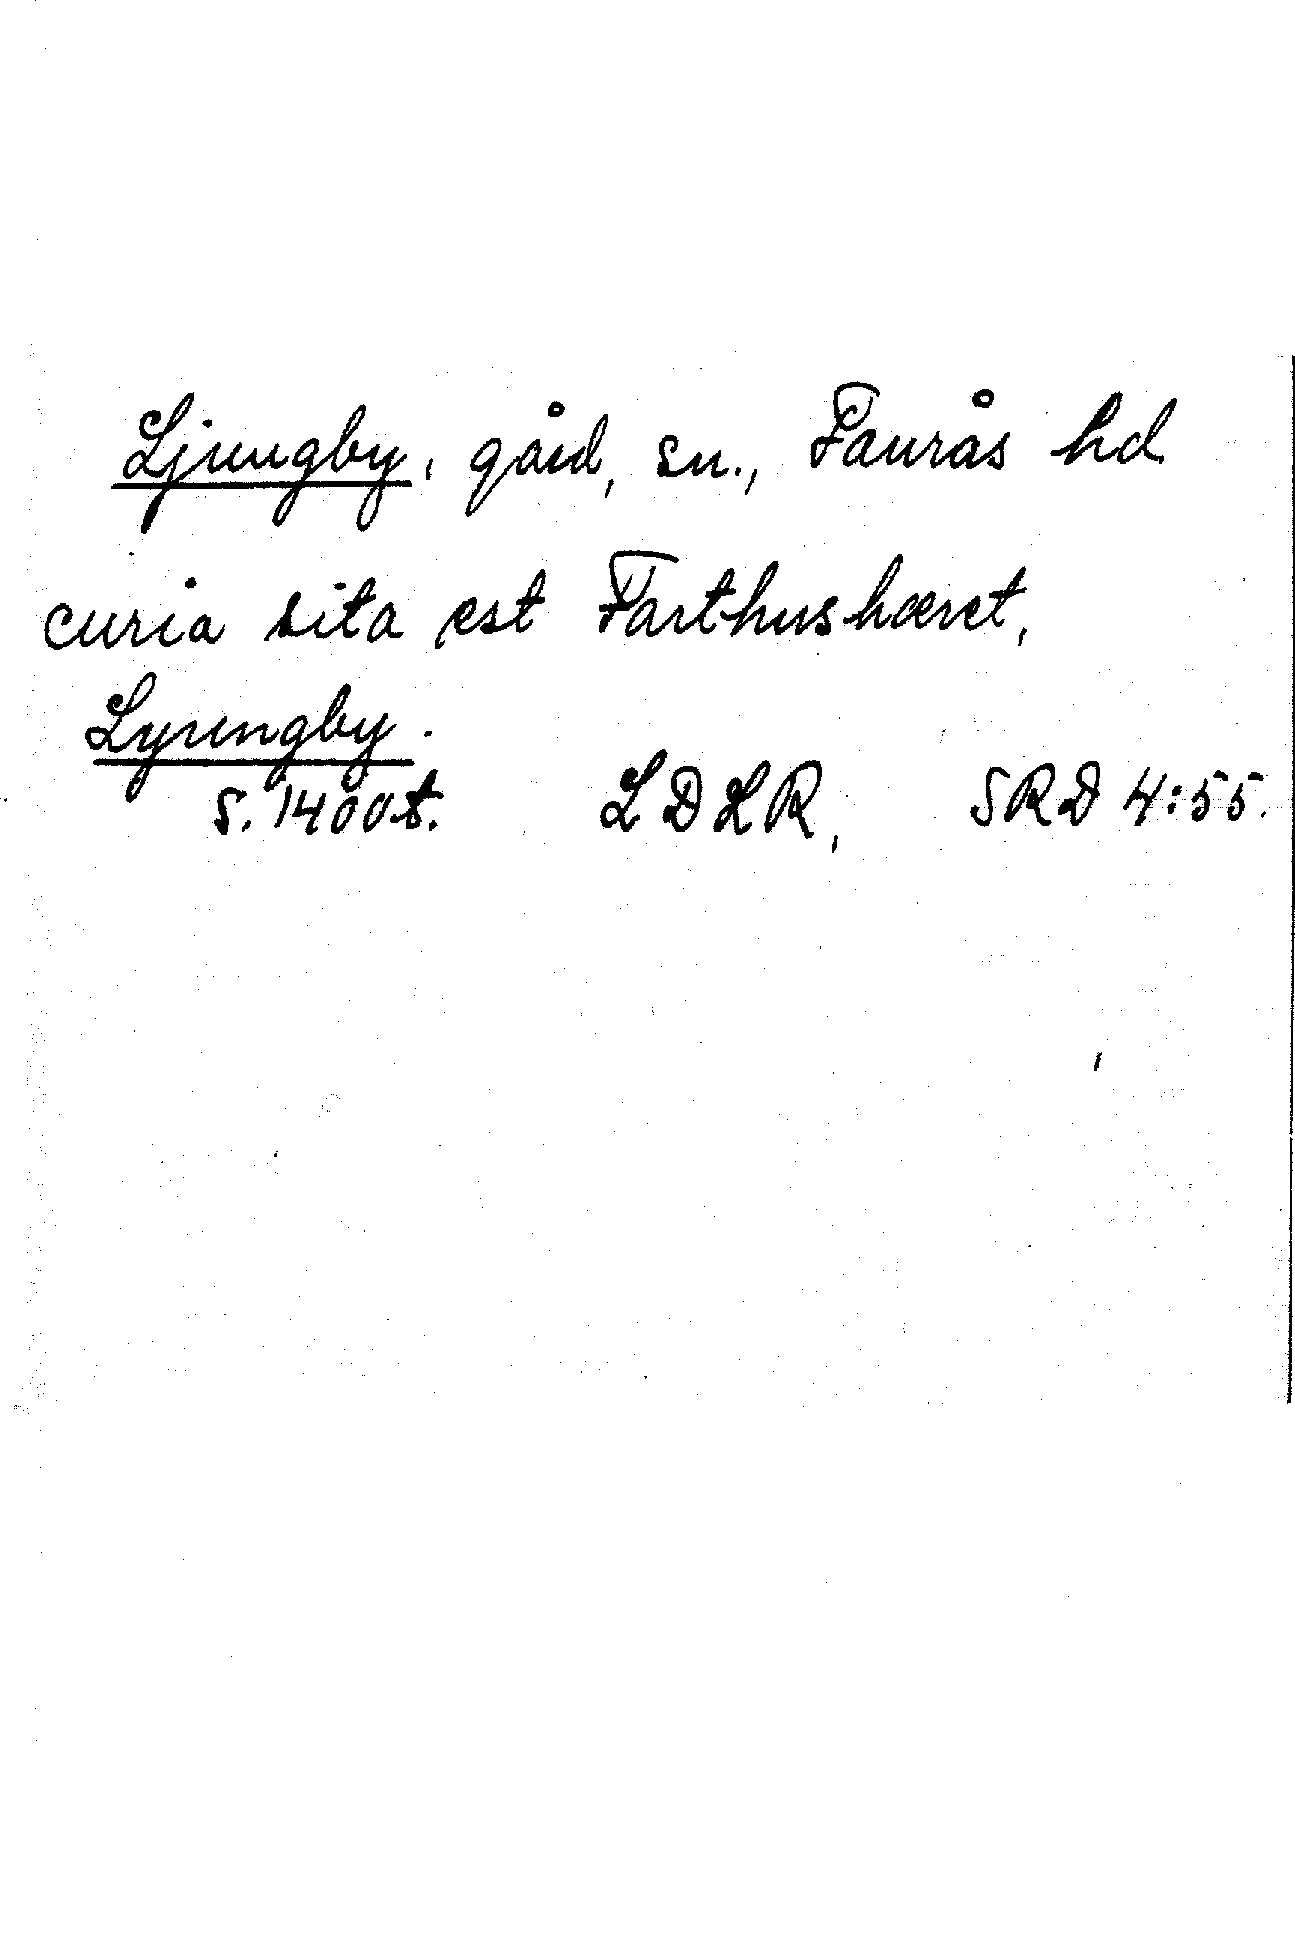 Ljungby, gård, sn., Faurås hd
curia sita est Farthushæret,
Lyungby.
S. 1400t. LDLR, SRD 4:55.